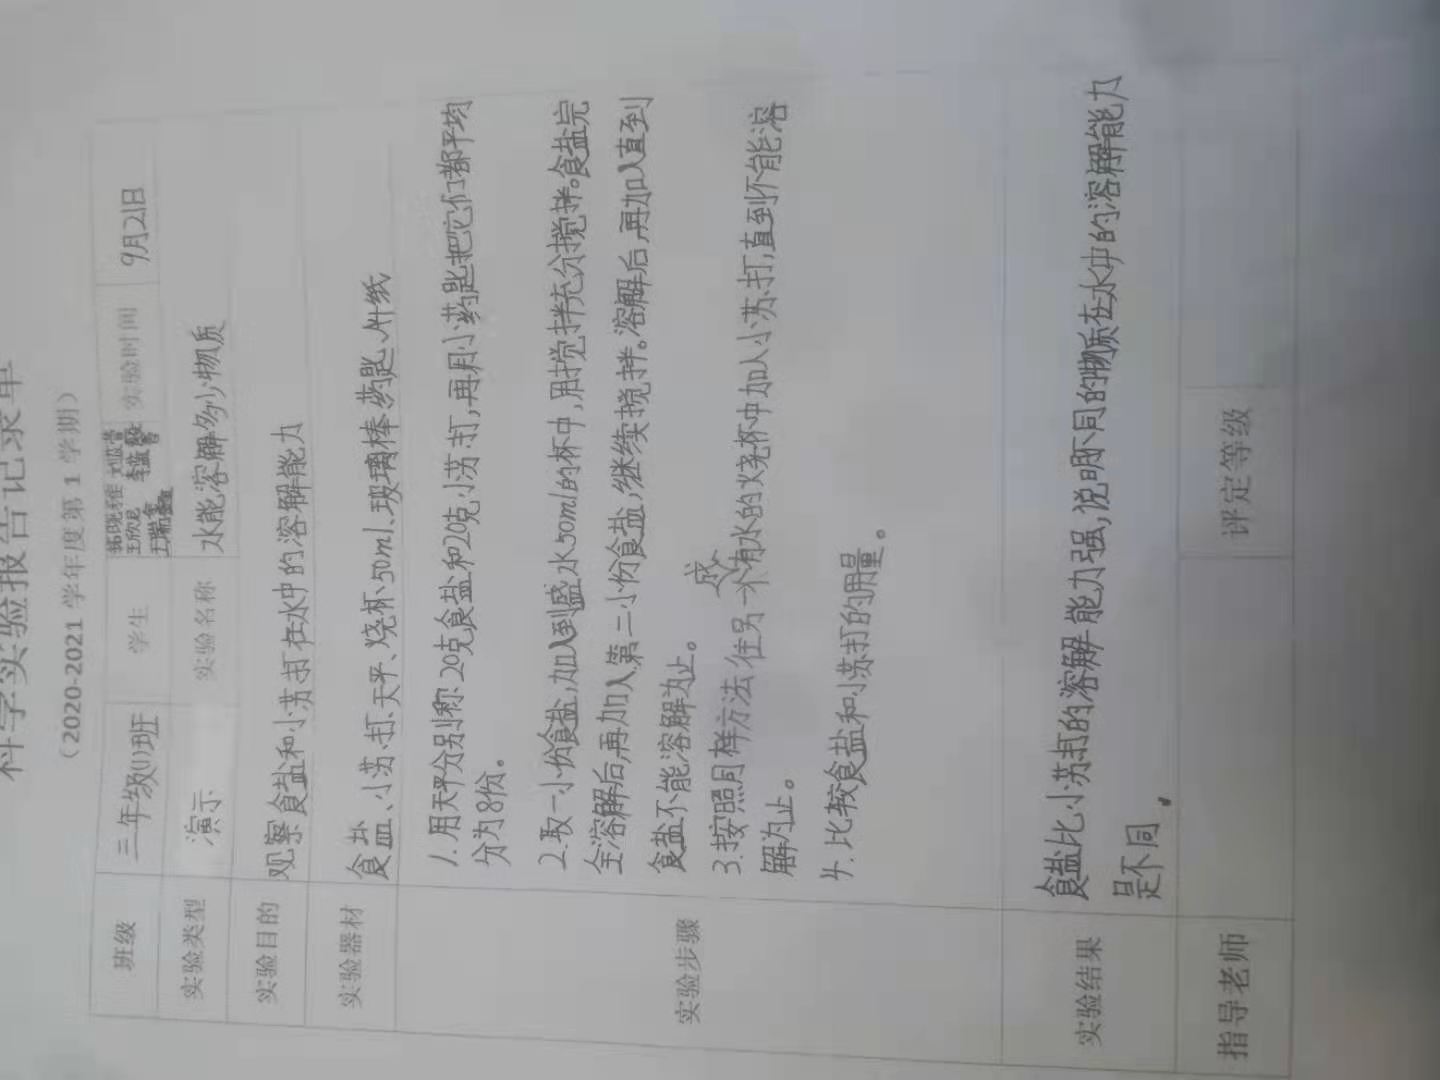 科学实验报告记录单
（2020-2021 学年度第 1 学期）
班级 三年级(1)班 学生 王欣 王瑞鑫 实验时间 9月21日
实验类型 演示 实验名称 水能溶解多少物质
实验目的 观察食盐和小苏打在水中的溶解能力
实验器材 食盐、小苏打、天平、烧杯、50ml、玻璃棒、药匙、小纸
实验步骤
1.用天平分别称20克食盐和20克小苏打,再用小药匙把它们都平均
分为8份。
2.取一小份食盐,加入到盛水50ml的杯中,用搅拌充分搅拌。食盐完
全溶解后,再加入第二小份食盐,继续搅拌。溶解后,再加入直到
食盐不能溶解为止。
3.按照同样方法往另一个成有水的烧杯中加入小苏打,直到不能溶
解为止。
4.比较食盐和小苏打的用量。
实验结果 食盐比小苏打的溶解能力强,说明不同的物质在水中的溶解能力
是不同.
指导老师 评定等级